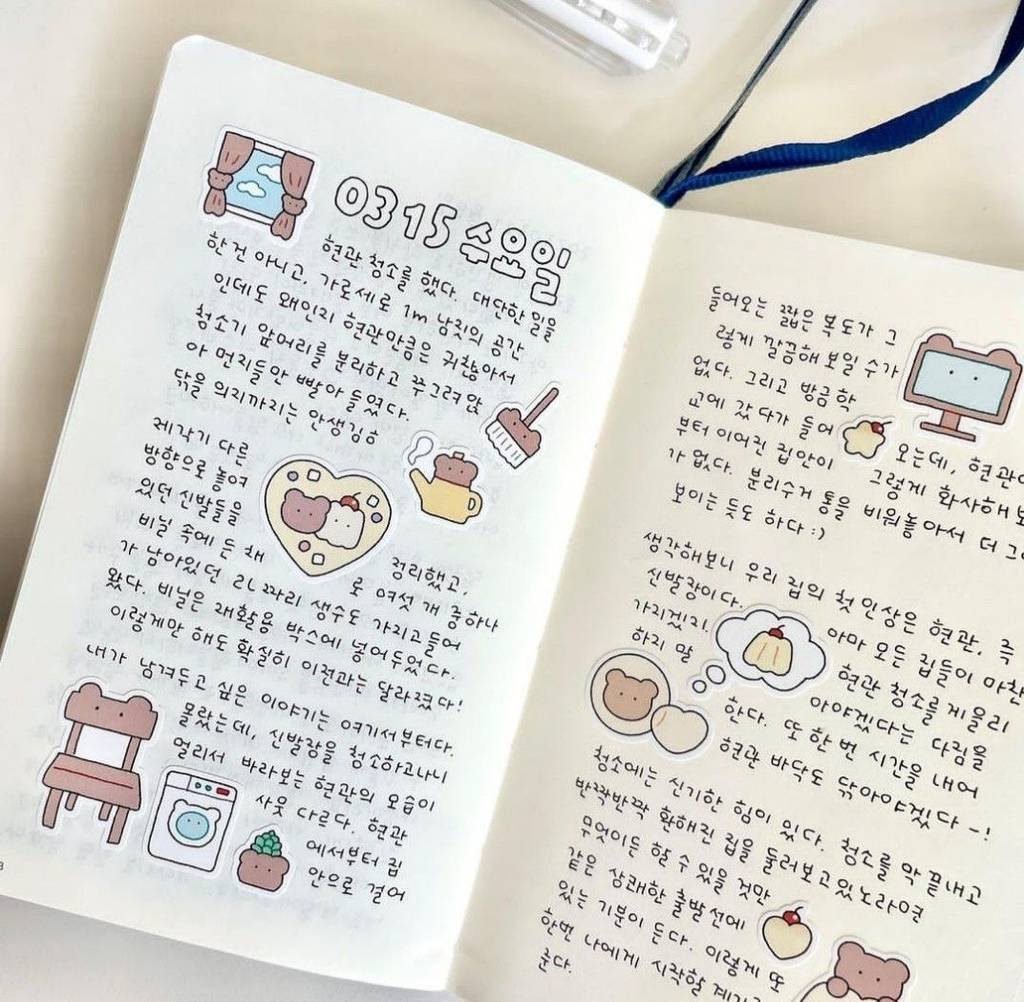 03 15 수요일
현관 청소를 했다. 대단한 일을
한 건 아니고, 가로세로 1m 남짓의 공간
인데도 왜인지 현관만큼은 귀찮아서
청소기 앞머리를 분리하고 쭈그려 앉
아 먼지들만 빨아 들였다.
닦을 의지까지는 안생김ㅎ
제각기 다른
방향으로 놓여
있던 신발들을
비닐 속에 든 채
정리했고,
가 남아있던 2L 짜리 생수도
로 여섯 개 중 하나
가지고 들어
왔다. 비닐은 재활용 박스에 넣어두었다.
이렇게만 해도 확실히 이전과는 달라졌다!
내가 남겨두고 싶은 이야기는 여기서부터다.
몰랐는데, 신발장을 청소하고나니
멀리서 바라보는 현관의 모습이
사뭇 다르다. 현관
에서부터 집
안으로 걸어
들어오는 짧은 복도가 그
렇게 깔끔해 보일 수가
없다. 그리고 방금 학
교에 갔다가 들어
오는데, 현관에
부터 이어진 집안이
그렇게 화사해 보
가 없다. 분리수거 통을 비워놓아서 더
보이는 듯도 하다 :)
생각해보니 우리 집의 첫인상은 현관, 즉
신발장이다.
아마 모든 집들이 마찬
가지겠지.
현관 청소를 게을리
하지 말
아야겠다는 다짐을
한다. 또 한 번 시간을 내어
현관 바닥도 닦아야겠다-!
청소에는 신기한 힘이 있다. 청소를 막 끝내고
반짝반짝 환해진 집을 둘러보고있노라면
무엇이든 할 수 있을 것만
같은 상쾌한 출발선에
있는 기분이 든다. 이렇게 또
한번 나에게 시작할 계기를
준다.